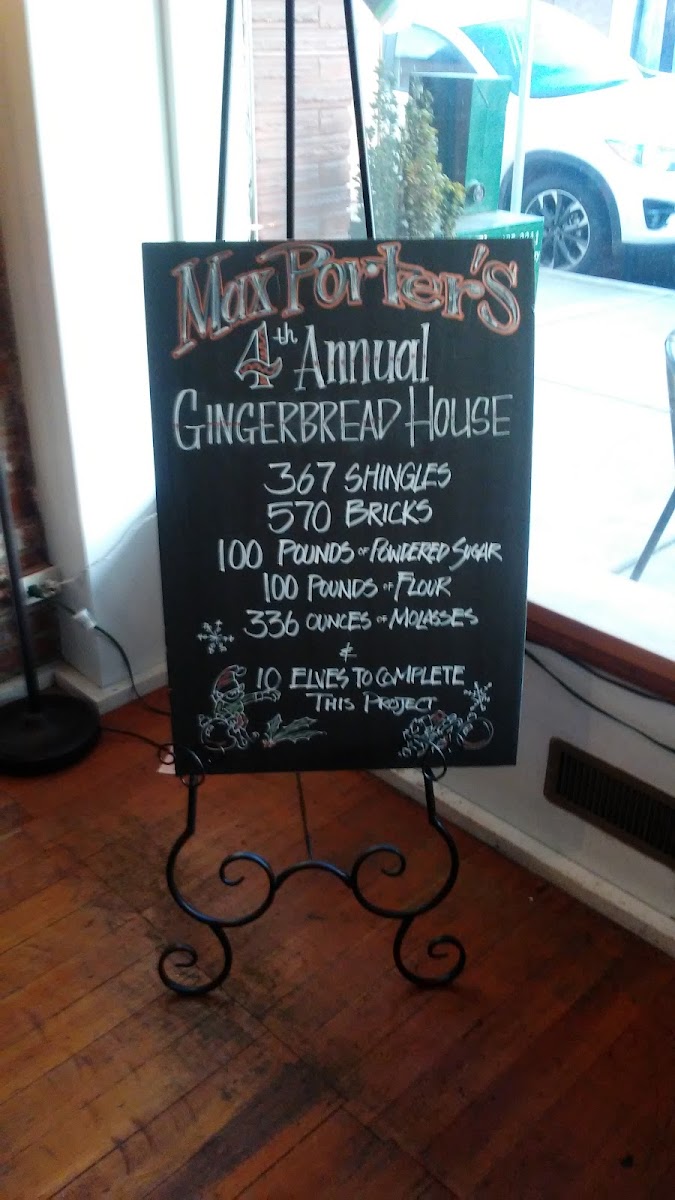 Max Porter's
4th Annual
Gingerbread House
367 Shingles
570 Bricks
100 Pounds of Powdered Sugar
100 Pounds of Flour
336 ounces of Molasses
&
10 Elves to Complete
This Project